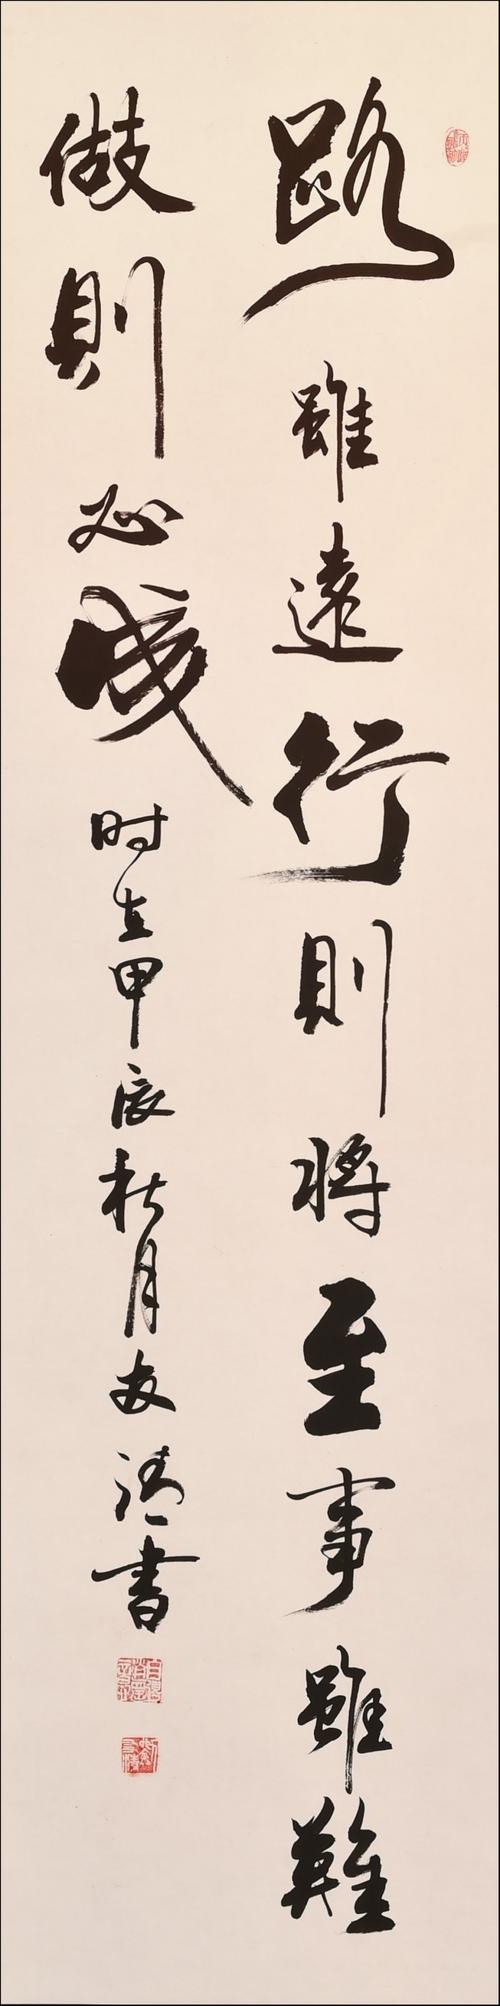 路雖遠行則將至事雖難
做則必成
时在甲辰秋月友清書